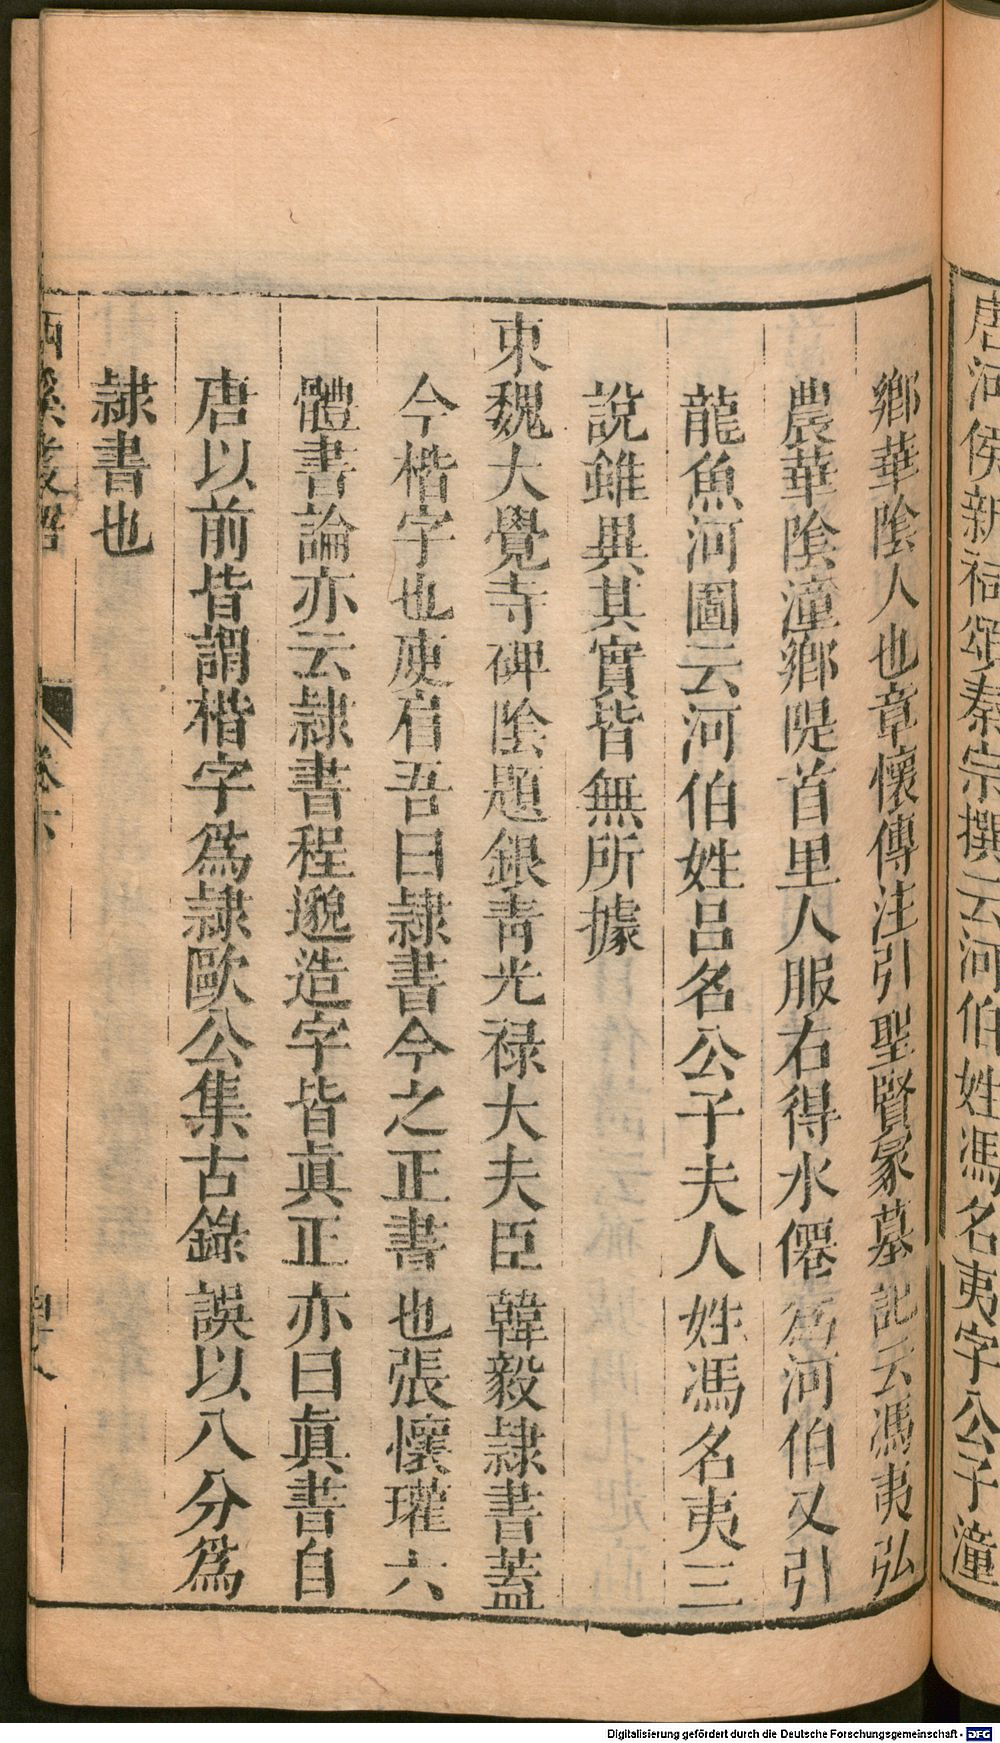 唐河侯新祠頌秦宗撰云河伯姓馮名夷字公子潼
鄉華陰人也章懷傳注引聖賢冢墓記云馮夷弘
農華陰潼鄉隄首里人服石得水僊爲河伯又引
龍魚河圖云河伯姓呂名公子夫人姓馮名夷三
說雖異其實皆無所據
東魏大覺寺碑陰題銀青光祿大夫臣韓毅隷書蓋
今楷字也庾肩吾曰隷書今之正書也張懷瓘六
體書論亦云隷書程邈造字皆眞正亦曰眞書自
唐以前皆謂楷字爲隷歐公集古錄誤以八分爲
隷書也
西溪叢
卷六
Digitalisierung gefördert durch die Deutsche Forschungsgemeinschaft - DFG